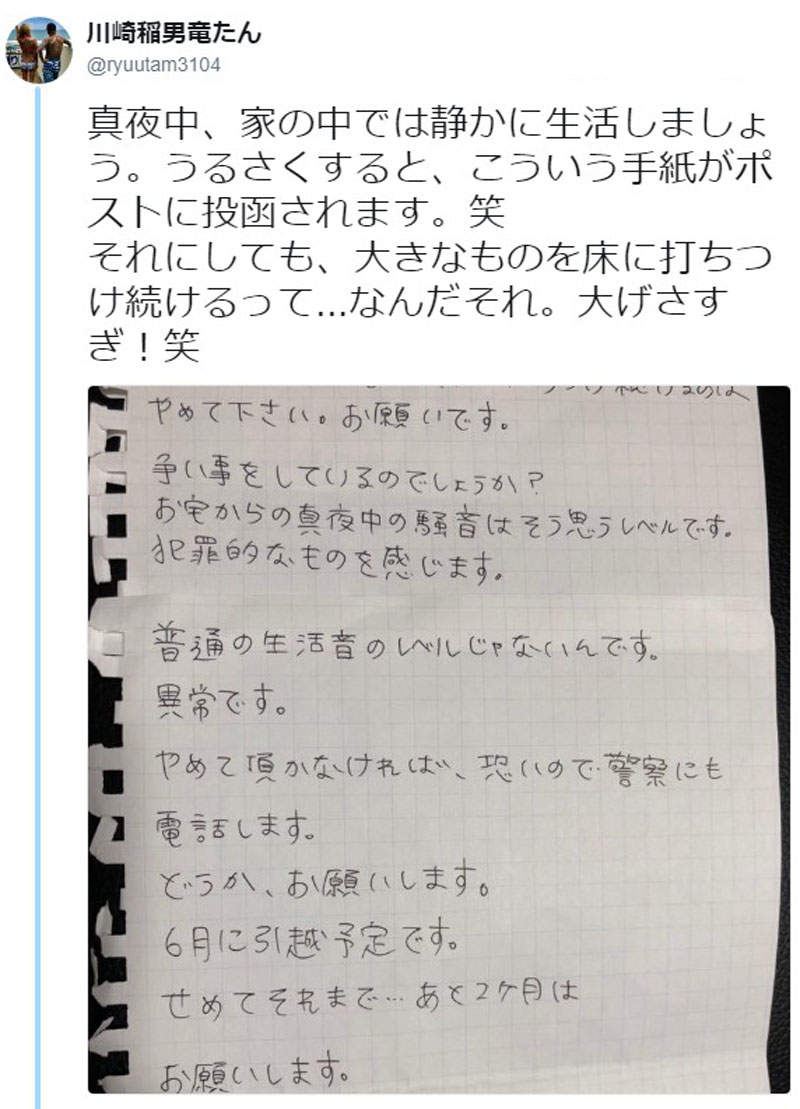 川崎稲男竜たん
@ryuutam3104
真夜中、家の中では静かに生活しましょ
う。うるさくすると、こういう手紙がポ
ストに投函されます。笑
それにしても、大きなものを床に打ちつ
け続けるって...なんだそれ。大げさす
ぎ！笑
つけ続けるのは
やめて下さい。お願いです。
争い事をしているのでしょうか?
お宅からの真夜中の騒音はそう思うレベルです。
犯罪的なものを感じます。
普通の生活音のレベルじゃないんです。
異常です。
やめて頂かなければ、恐いので警察にも
電話します。
どうか、お願いします。
6月に引越予定です。
せめてそれまで…あと2ケ月は
お願いします。